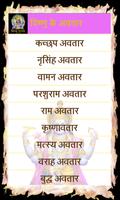 विष्णु के अवतार
कच्छप अवतार
नृसिंह अवतार
वामन अवतार
परशुराम अवतार
राम अवतार
कृष्णावतार
मत्स्य अवतार
वराह अवतार
बुद्ध अवतार